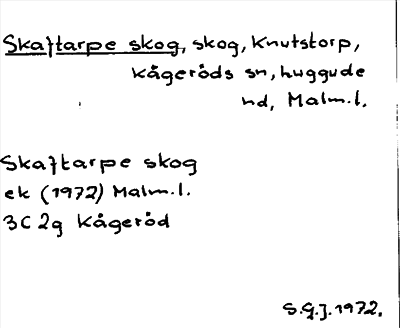 Skaftarpe skog, skog, Knutstorp,
Kågeröds sn, Luggude
hd, Malm.l.
Skaftarpe skog
ek (1972) Malm.l.
3C 2g Kågeröd
S.G.J. 1972.